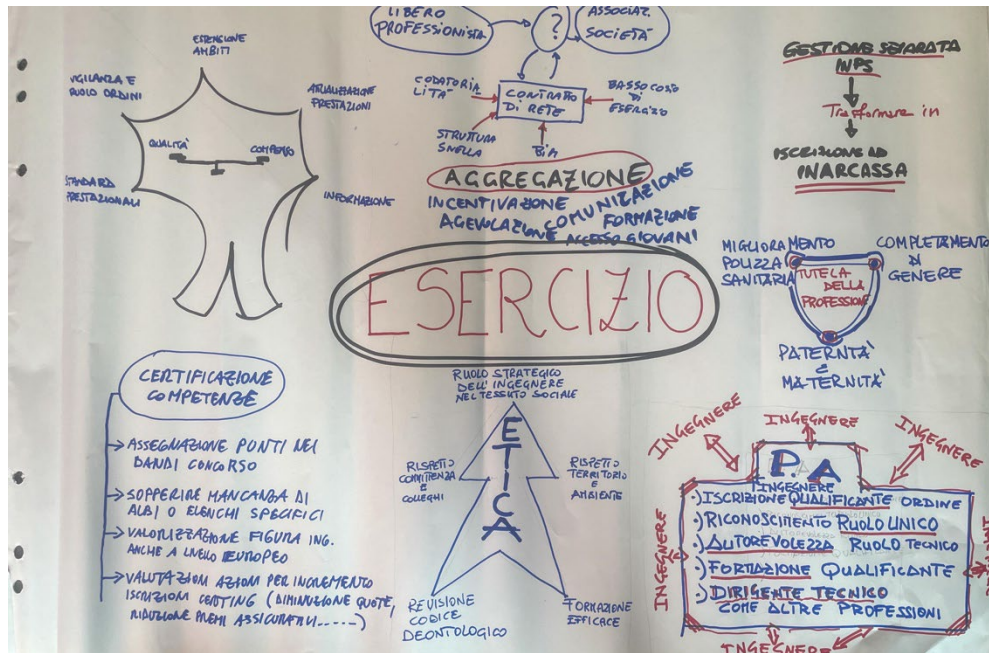 ESTENSIONE
AMBITI
VIGILANZA E
RUOLO ORDINI
ATTUALIZZAZIONE
PRESTAZIONI
QUALITÀ
COMPENSO
STANDARD
PRESTAZIONALI
INFORMAZIONE
LIBERO
PROFESSIONISTA
?
ASSOCIAZ.
SOCIETÀ
CODATORIA
LITÀ
CONTRATTO
DI RETE
BASSO COSTO
DI
ESERCIZIO
STRUTTURA
SNELLA
BIM
AGGREGAZIONE
INCENTIVAZIONE
AGEVOLAZIONE
COMUNICAZIONE
FORMAZIONE
ACCESSO GIOVANI
GESTIONE SEPARATA
INPS
Trasformare in
ISCRIZIONE AD
INARCASSA
ESERCIZIO
MIGLIORAMENTO
POLIZZA
SANITARIA
COMPLETAMENTO
DI
GENERE
TUTELA
DELLA
PROFESSIONE
PATERNITÀ
E
MATERNITÀ
CERTIFICAZIONE
COMPETENZE
ASSEGNAZIONE PUNTI NEI
BANDI CONCORSO
SOPPERIRE MANCANZA DI
ALBI O ELENCHI SPECIFICI
VALORIZZAZIONE FIGURA ING.
ANCHE A LIVELLO EUROPEO
VALUTAZIONI AZIONI PER INCREMENTO
ISCRIZIONI CERTING (DIMINUZIONE QUOTE,
RIDUZIONE PREMI ASSICURATIVI.....)
RUOLO STRATEGICO
DELL'INGEGNERE
NEL TESSUTO SOCIALE
ETICA
RISPETTO
COMMITTENZA
E
COLLEGHI
RISPETTO
TERRITORIO
E
AMBIENTE
REVISIONE
CODICE
DEONTOLOGICO
FORMAZIONE
EFFICACE
INGEGNERE
INGEGNERE
INGEGNERE
P.A
INGEGNERE
·)ISCRIZIONE QUALIFICANTE ORDINE
·)RICONOSCIMENTO RUOLO UNICO
·)AUTOREVOLEZZA RUOLO TECNICO
·)FORMAZIONE QUALIFICANTE
·)DIRIGENTE TECNICO
COME ALTRE PROFESSIONI
INGEGNERE
INGEGNERE